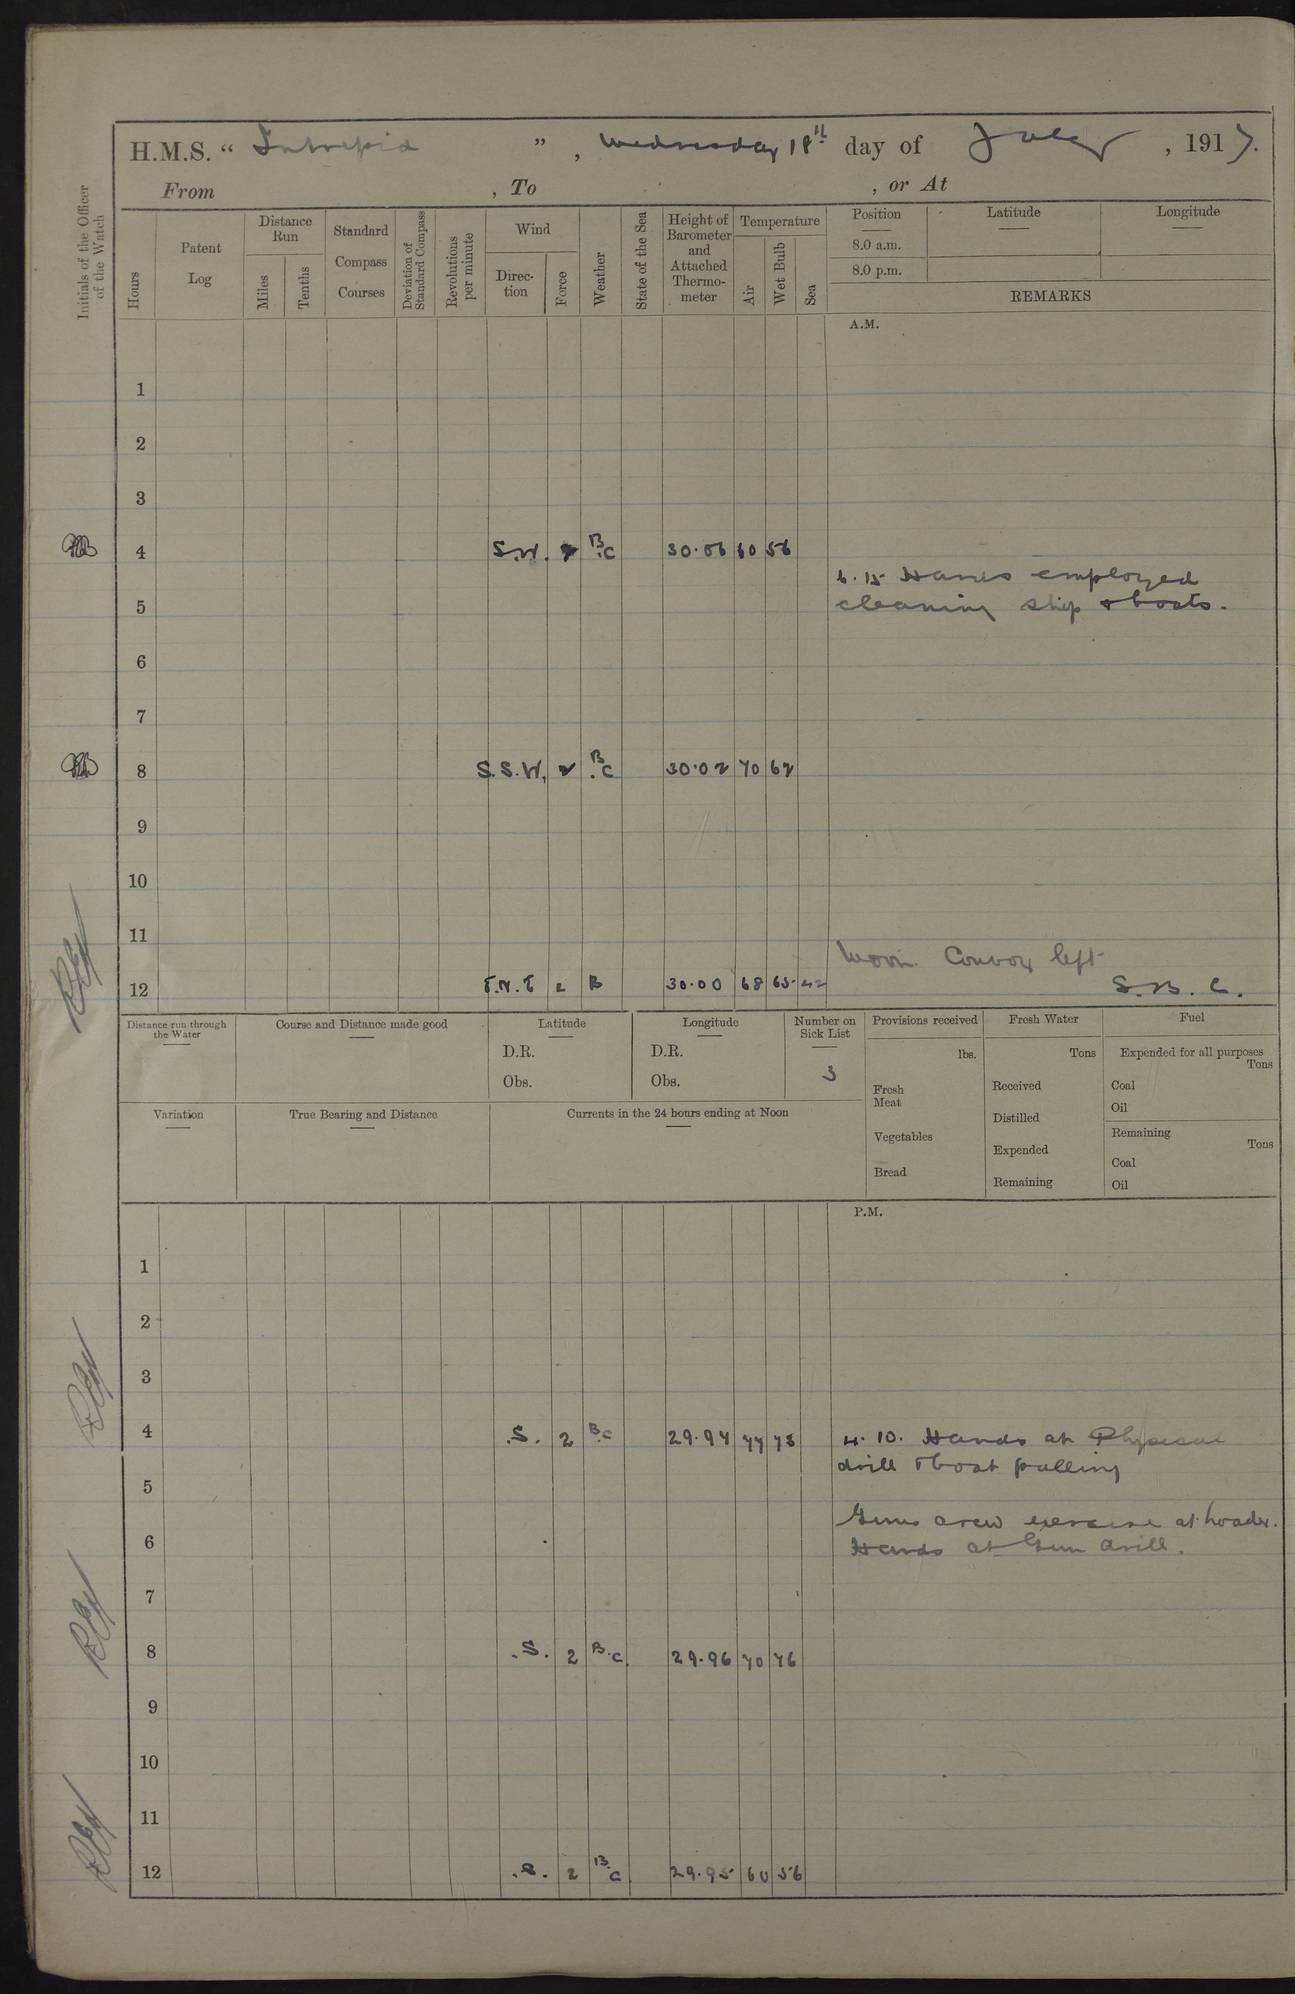 H.M.S. “ Intrepid ” , Wednesday 18th day of July , 1917.
From , To , or At
Initials of the Officer of the Watch
Hours
Patent Log
Distance Run
Miles
Tenths
Standard Compass Courses
Deviation of Standard Compass
Revolutions per minute
Wind
Direc- tion
Force
Weather
State of the Sea
Height of Barometer and Attached Thermo- meter
Temperature
Air
Wet Bulb
Sea
Position
8.0 a.m.
8.0 p.m.
Latitude
Longitude
REMARKS
A.M.
1
2
3
4 S.W. B.C 30.06 60 56
6.15 Hands employed
5 cleaning ship & boats.
6
7
8 S.S.W. 2 B.C 30.02 70 62
9
10
11
Noon Convoy left
12 2 B 30.00 68 65 42 S.B.C.
Distance run through the Water
Course and Distance made good
Latitude
D.R.
Obs.
Longitude
D.R.
Obs.
Number on Sick List
3
Provisions received
lbs.
Fresh Meat
Vegetables
Bread
Fresh Water
Tons
Received
Distilled
Expended
Remaining
Fuel
Expended for all purposes
Tons
Coal
Oil
Remaining
Tons
Coal
Oil
Variation
True Bearing and Distance
Currents in the 24 hours ending at Noon
P.M.
1
2
3
4 S. 2 B.C 29.94 77 73 4.10. Hands at Physical
drill & boat pulling
5
Guns crew exercise at loader.
6 Hands at Gun drill.
7
8 S. 2 B.C. 29.96 70 76
9
10
11
12 S. 2 B.C 29.95 60 56